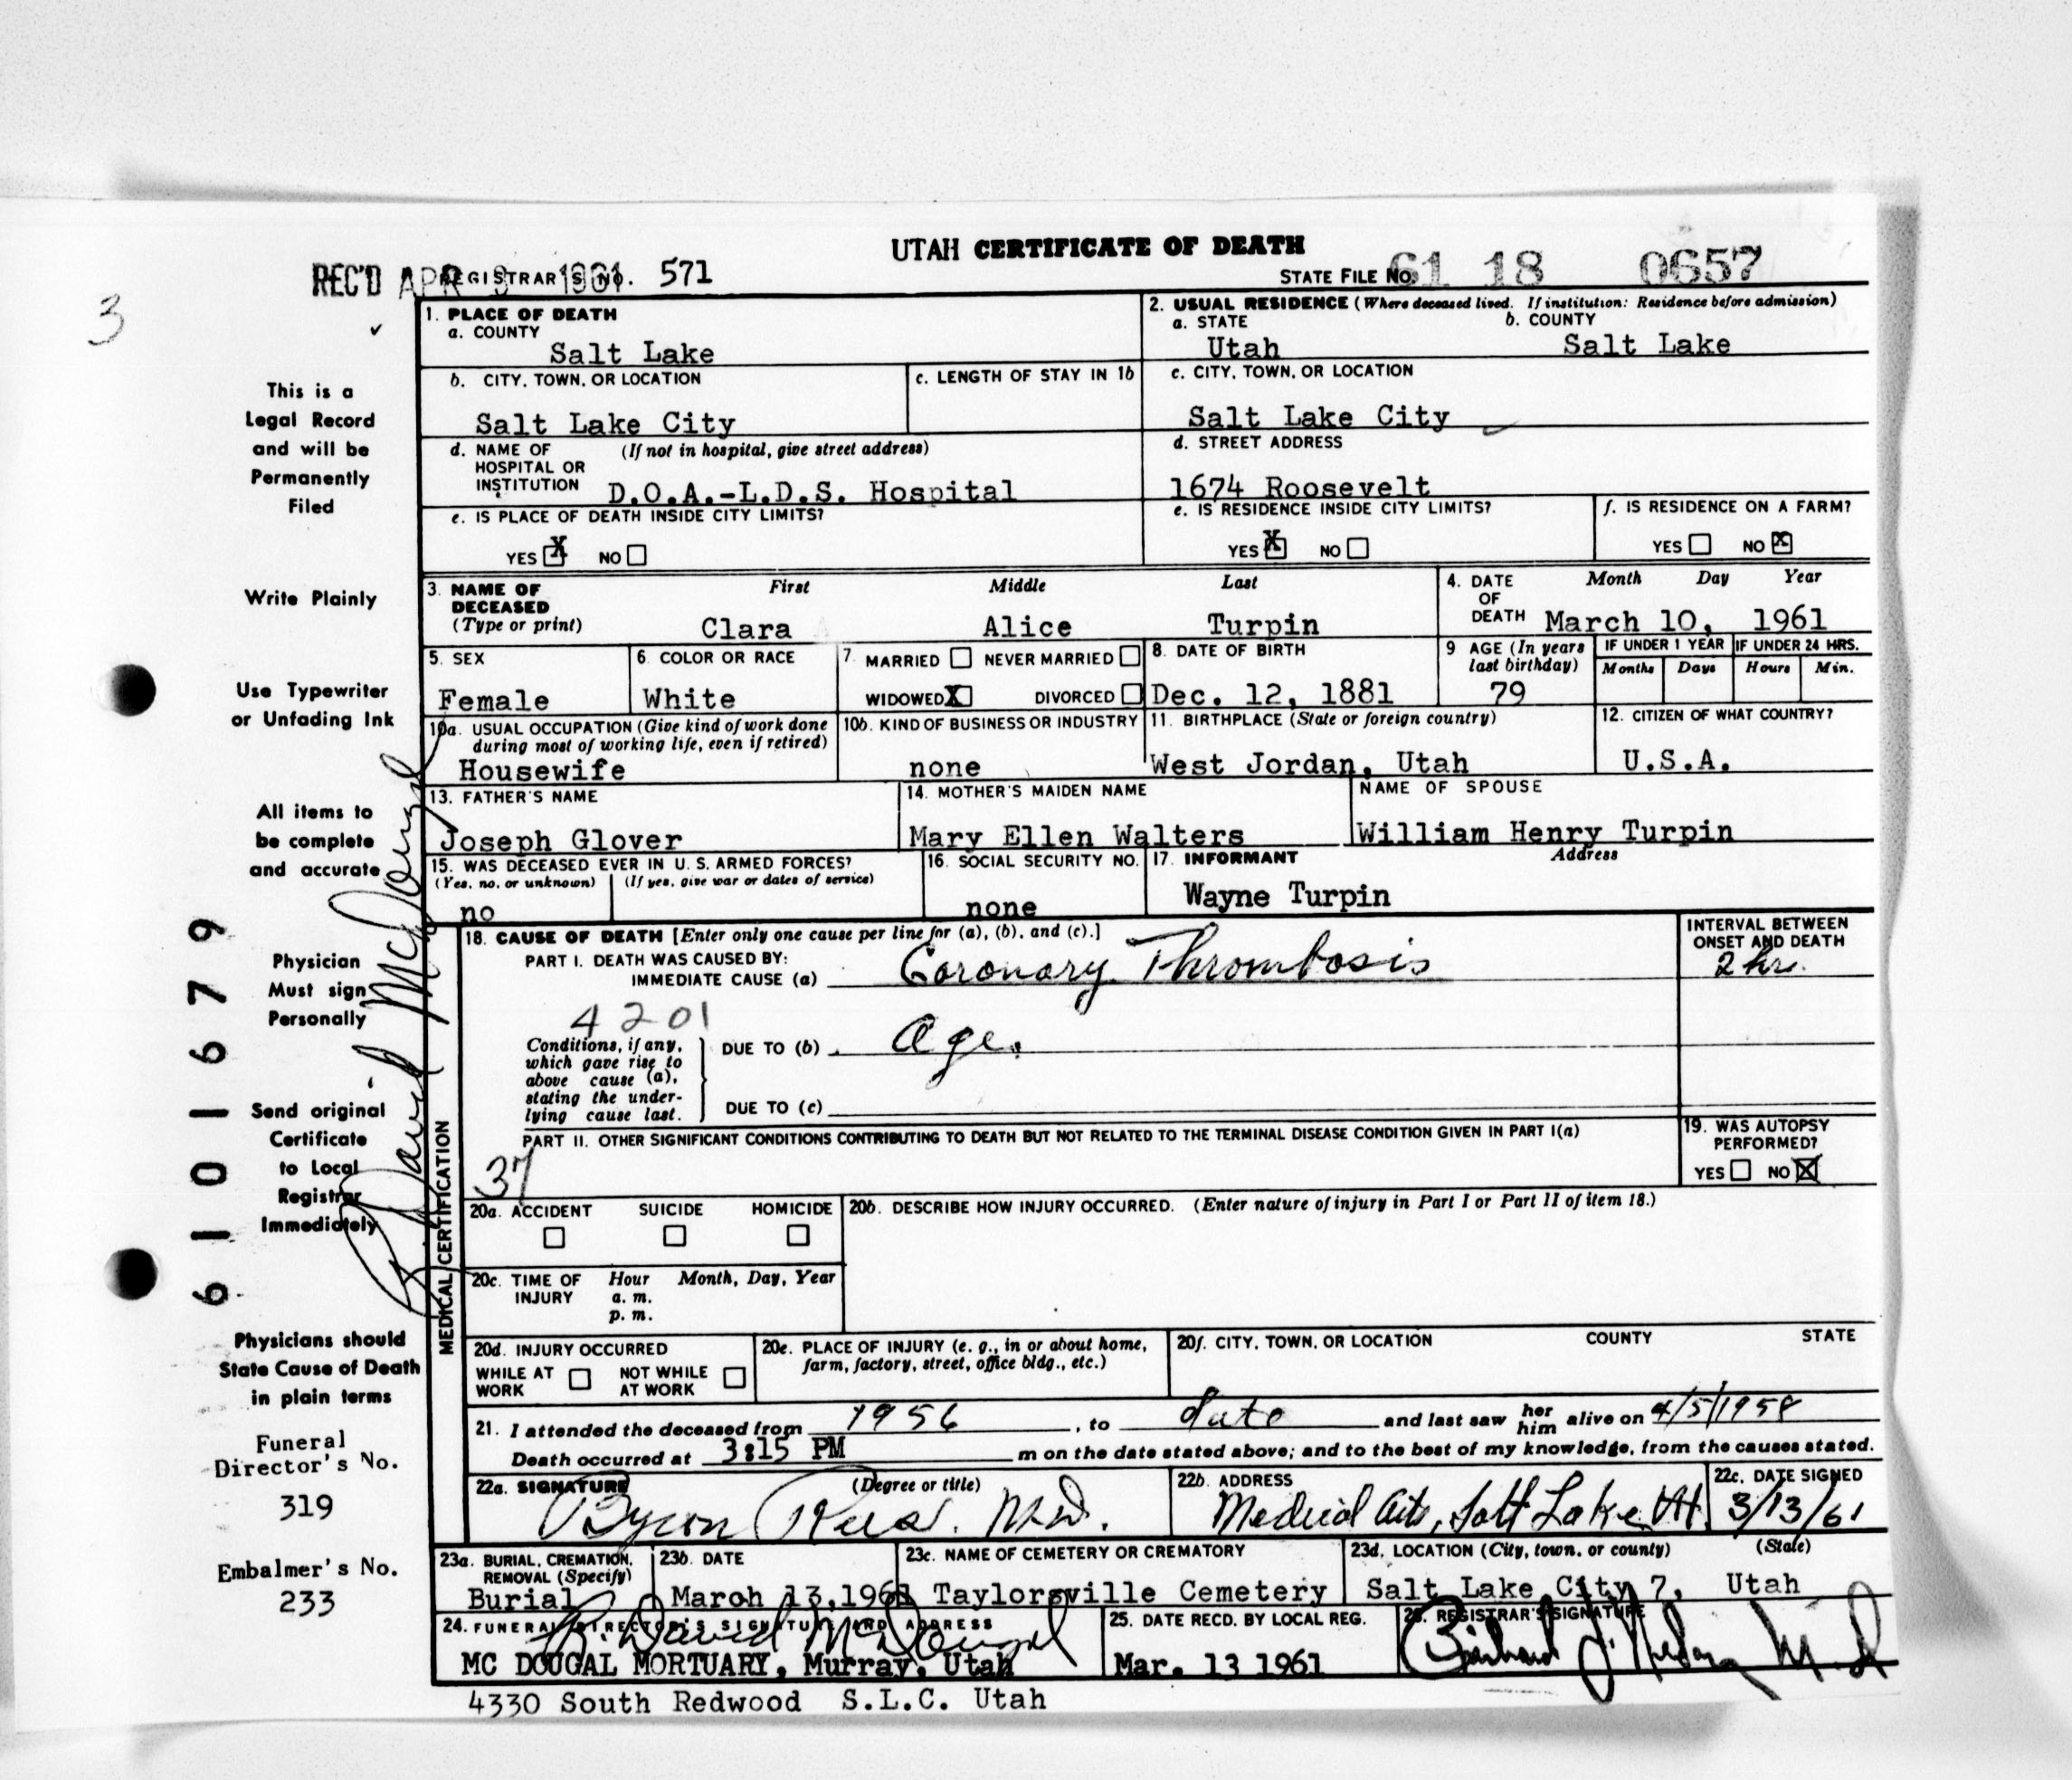 UTAH CERTIFICATE OF DEATH
REC'D APR 1961 REGISTRAR'S NO. 571
STATE FILE NO. 61 18 0657
3
1. PLACE OF DEATH
a. COUNTY
Salt Lake
2. USUAL RESIDENCE (Where deceased lived. If institution: Residence before admission)
a. STATE b. COUNTY
Utah Salt Lake
b. CITY, TOWN, OR LOCATION
Salt Lake City
c. LENGTH OF STAY IN 1b
c. CITY, TOWN, OR LOCATION
Salt Lake City
d. NAME OF (If not in hospital, give street address)
HOSPITAL OR
INSTITUTION D.O.A.-L.D.S. Hospital
d. STREET ADDRESS
1674 Roosevelt
e. IS PLACE OF DEATH INSIDE CITY LIMITS?
YES X NO
e. IS RESIDENCE INSIDE CITY LIMITS?
YES X NO
f. IS RESIDENCE ON A FARM?
YES NO X
3. NAME OF First Middle Last
DECEASED
(Type or print) Clara Alice Turpin
4. DATE Month Day Year
OF
DEATH March 10, 1961
5. SEX
Female
6. COLOR OR RACE
White
7. MARRIED NEVER MARRIED
WIDOWED X DIVORCED
8. DATE OF BIRTH
Dec. 12, 1881
9 AGE (In years
last birthday)
79
IF UNDER 1 YEAR IF UNDER 24 HRS.
Months Days Hours Min.
10a. USUAL OCCUPATION (Give kind of work done
during most of working life, even if retired)
Housewife
10b. KIND OF BUSINESS OR INDUSTRY
none
11. BIRTHPLACE (State or foreign country)
West Jordan, Utah
12. CITIZEN OF WHAT COUNTRY?
U.S.A.
13. FATHER'S NAME
Joseph Glover
14. MOTHER'S MAIDEN NAME
Mary Ellen Walters
NAME OF SPOUSE
William Henry Turpin
15. WAS DECEASED EVER IN U. S. ARMED FORCES?
(Yes, no, or unknown) (If yes, give war or dates of service)
no
16. SOCIAL SECURITY NO.
none
17. INFORMANT Address
Wayne Turpin
18. CAUSE OF DEATH [Enter only one cause per line for (a), (b), and (c).]
PART I. DEATH WAS CAUSED BY:
IMMEDIATE CAUSE (a) Coronary Thrombosis
INTERVAL BETWEEN
ONSET AND DEATH
2 hr.
4201
Conditions, if any,
which gave rise to
above cause (a),
stating the under-
lying cause last.
DUE TO (b) Age.
DUE TO (c)
PART II. OTHER SIGNIFICANT CONDITIONS CONTRIBUTING TO DEATH BUT NOT RELATED TO THE TERMINAL DISEASE CONDITION GIVEN IN PART I(a)
37
19. WAS AUTOPSY
PERFORMED?
YES NO X
20a. ACCIDENT SUICIDE HOMICIDE
20b. DESCRIBE HOW INJURY OCCURRED. (Enter nature of injury in Part I or Part II of item 18.)
20c. TIME OF Hour Month, Day, Year
INJURY a. m.
p. m.
20d. INJURY OCCURRED
WHILE AT WORK NOT WHILE AT WORK
20e. PLACE OF INJURY (e. g., in or about home,
farm, factory, street, office bldg., etc.)
20f. CITY, TOWN, OR LOCATION COUNTY STATE
21. I attended the deceased from 1956, to date and last saw her him alive on 4/5/1958
Death occurred at 3:15 PM m on the date stated above; and to the best of my knowledge, from the causes stated.
22a. SIGNATURE (Degree or title)
Byron Rees. M.D.
22b. ADDRESS
Medical Arts, Salt Lake, Ut.
22c. DATE SIGNED
3/13/61
23a. BURIAL, CREMATION,
REMOVAL (Specify)
Burial
23b. DATE
March 13, 1961
23c. NAME OF CEMETERY OR CREMATORY
Taylorsville Cemetery
23d. LOCATION (City, town, or county) (State)
Salt Lake City 7, Utah
24. FUNERAL DIRECTOR'S SIGNATURE AND ADDRESS
R. David McDougal
MC DOUGAL MORTUARY, Murray, Utah
4330 South Redwood S.L.C. Utah
25. DATE RECD. BY LOCAL REG.
Mar. 13 1961
26. REGISTRAR'S SIGNATURE
MEDICAL CERTIFICATION
This is a
Legal Record
and will be
Permanently
Filed
Write Plainly
Use Typewriter
or Unfading Ink
All items to
be complete
and accurate
Physician
Must sign
Personally
Send original
Certificate
to Local
Registrar
Immediately
Physicians should
State Cause of Death
in plain terms
Funeral
Director's No.
319
Embalmer's No.
233
R. David McDougal
61 01679